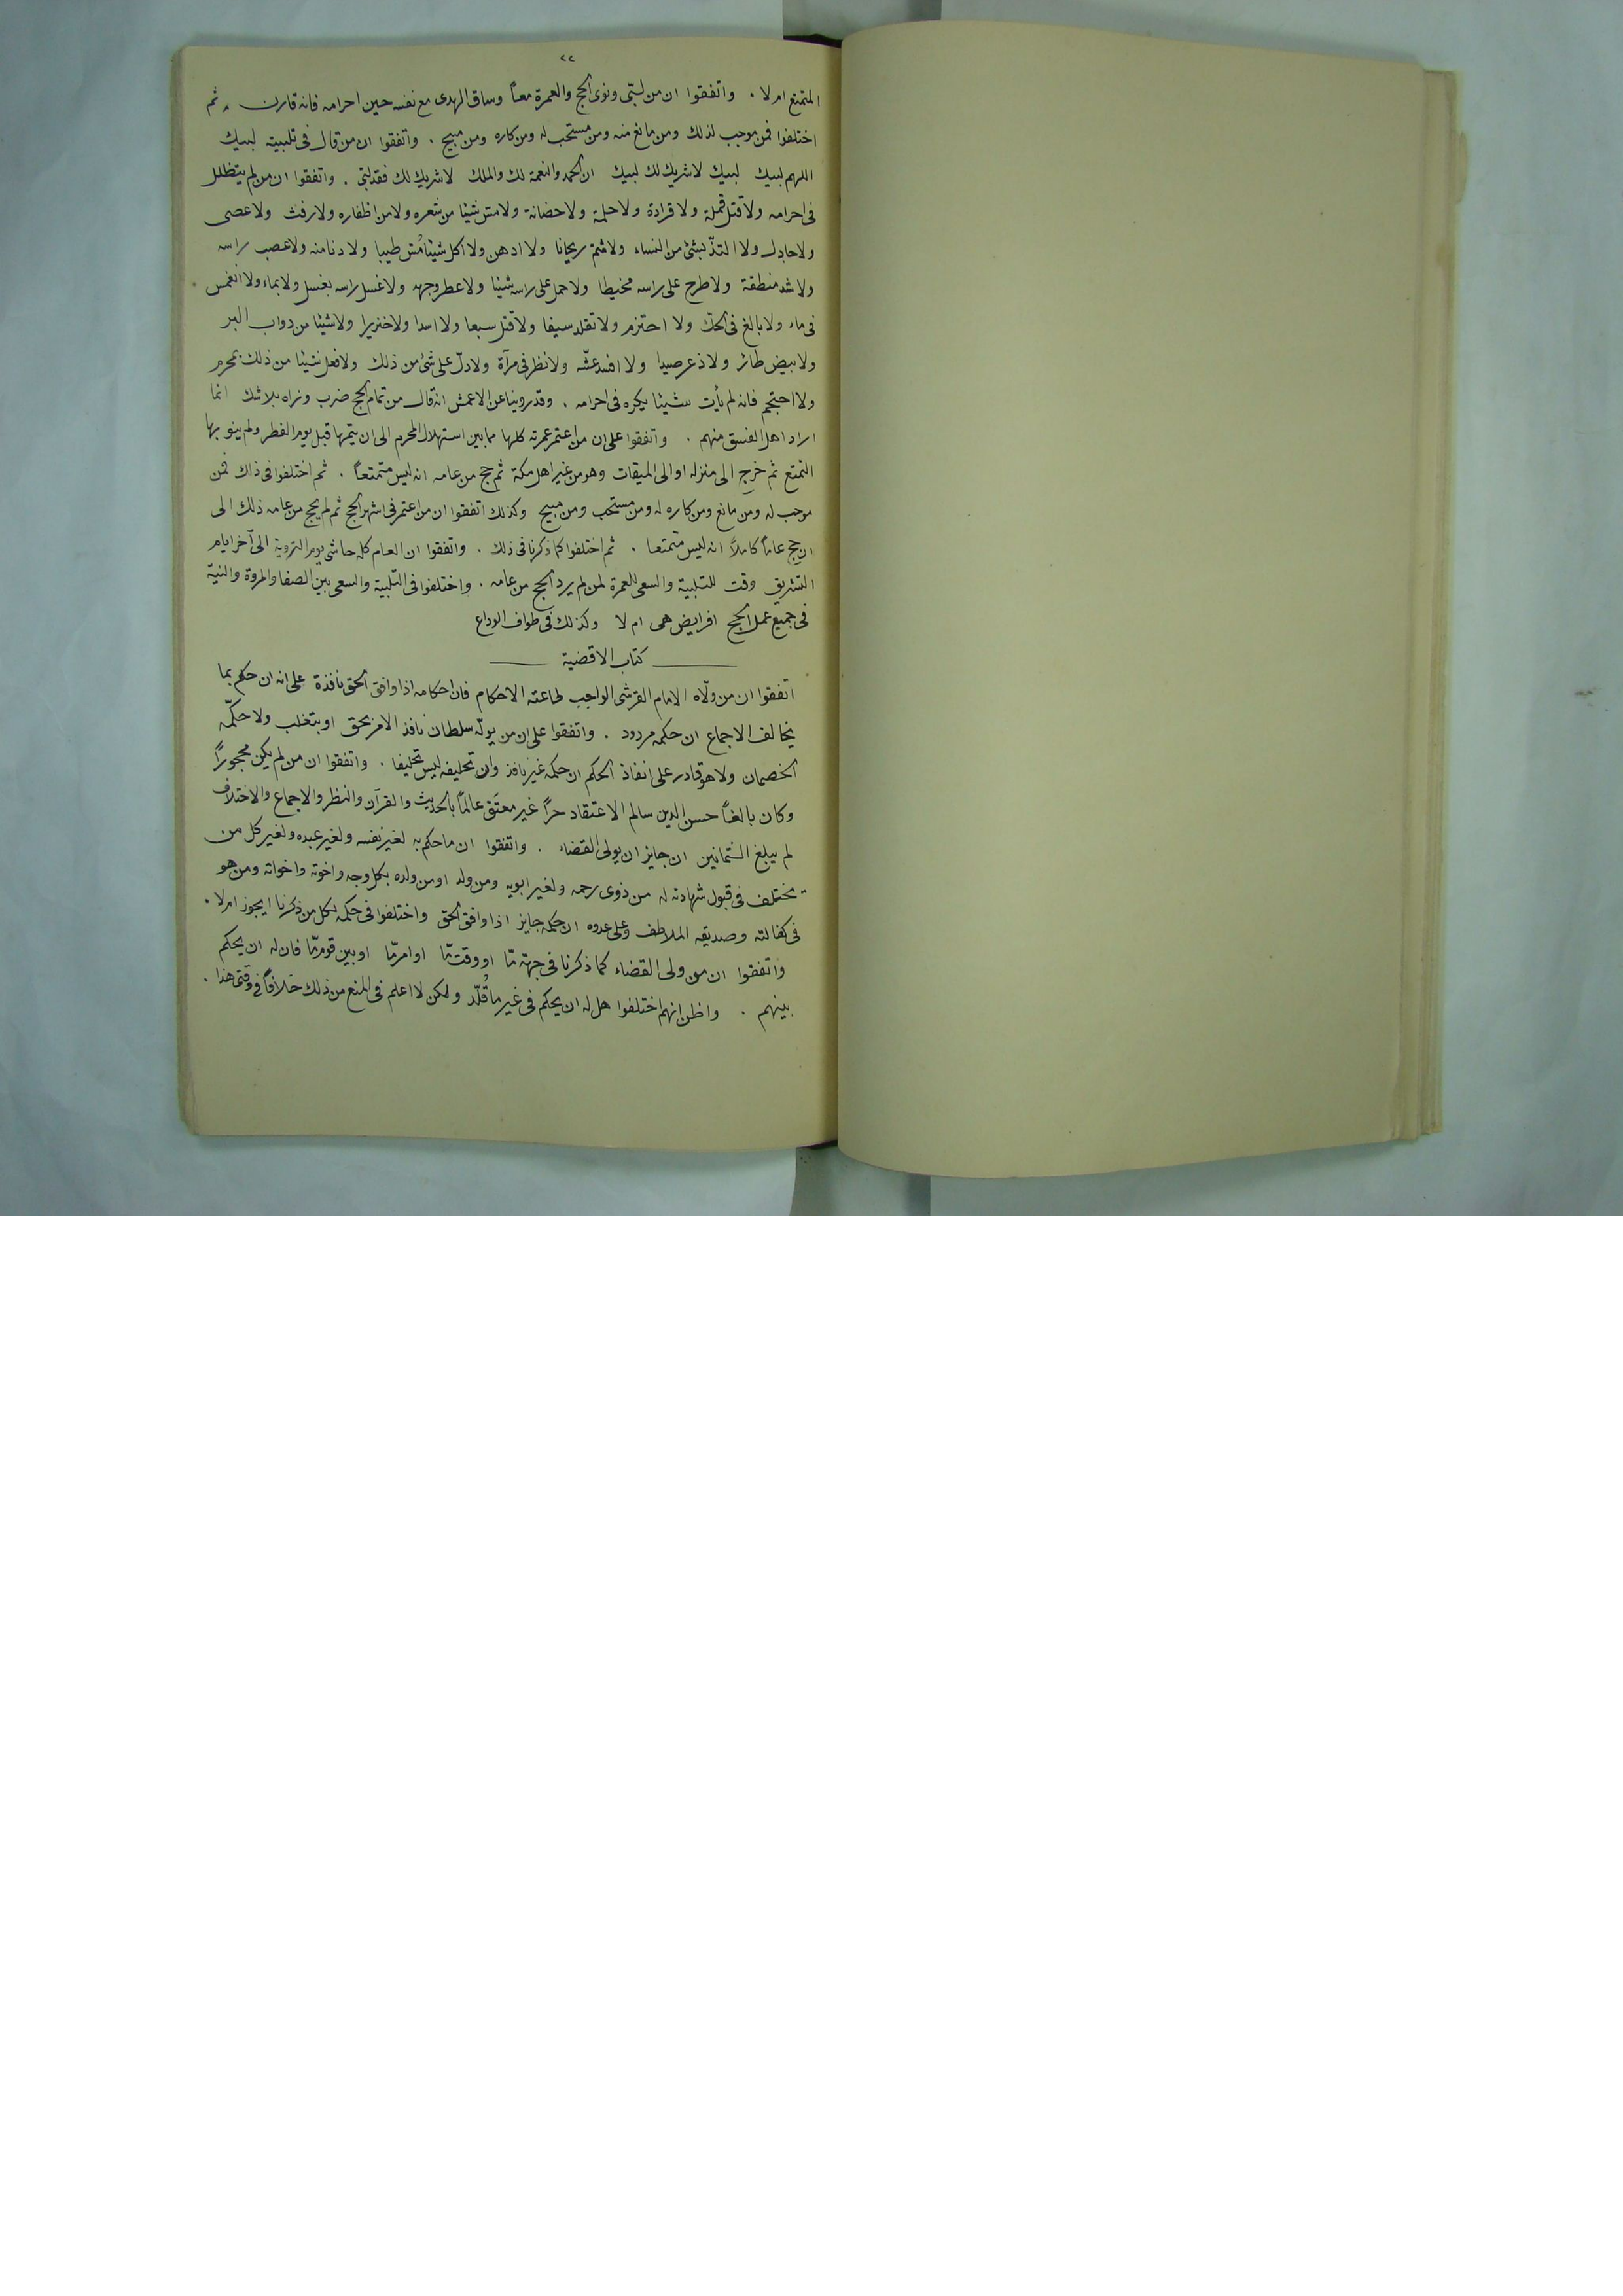 ٢٢
المتمتع ام لا . واتفقوا ان من لبّى ونوى الحج والعمرة معاً وساق الهدى مع نفسه حين احرامه فانه قارن . ثم
اختلفوا فمن موجب لذلك ومن مانع منه ومن مستحب له ومن كاره ومن مبيح . واتفقوا ان من قال فى تلبيته لبيك
اللهم لبيك لبيك لا شريك لك لبيك ان الحمد والنعمة لك والملك لا شريك لك فقد لبّى . واتفقوا ان من لم يتظلل
فى احرامه ولا قتل قملة ولا قرادة ولا حلمة ولا حضانة ولا مسّ شيئا من شعره ولا من اظفاره ولا رفث ولا عصى
ولا جادل ولا التذّ بشئ من النساء ولا شمّ ريحانا ولا ادهن ولا اكل شيئا مُسّ طيبا ولا دنا منه ولا عصب راسه
ولا شد منطقة ولا طرح على راسه مخيطا ولا حمل على راسه شيئا ولا عطر وجهه ولا غسل راسه بغسل ولا بماء ولا انغمس
فى ماء ولا بالغ فى الحكّ ولا احتزم ولا تقلد سيفا ولا قتل سبعا ولا اسدا ولا خنزيرا ولا شيئا من دواب البر
ولا بيض طائر ولا ذعر صيدا ولا افسد عشّه ولا نظر فى مرآة ولا دلّ على شئ من ذلك ولا فعل شيئا من ذلك بمحرم
ولا احتجم فانه لم يأت شيئا يكره فى احرامه . وقد روينا عن الاعمش انه قال من تمام الحج ضرب ونراه بلا شك انما
اراد اهل الفسق منهم . واتفقوا على ان من اعتمر عمرته كلها ما بين استهلال المحرم الى ان يتمها قبل يوم الفطر ولم ينو بها
التمتع ثم خرج الى منزله او الى الميقات وهو من غير اهل مكة ثم حج من عامه انه ليس متمتعاً . ثم اختلفوا فى ذاك فمن
موجب له ومن مانع ومن كاره له ومن مستحب ومن مبيح وكذلك اتفقوا ان من اعتمر فى اشهر الحج ثم لم يحج من عامه ذلك الى
ان حج عاماً كاملاً انه ليس متمتعا . ثم اختلفوا كما ذكرنا فى ذلك . واتفقوا ان العام كله حاشى يوم التروية الى آخر ايام
التشريق وقت للتلبية والسعى للعمرة لمن لم يرد الحج من عامه . واختلفوا فى التلبية والسعى بين الصفا والمروة والنية
فى جميع عمل الحج افرايض هى ام لا وكذلك فى طواف الوداع
كتاب الاقضية
اتفقوا ان من ولّاه الامام القرشى الواجب طاعته الاحكام فان احكامه اذا وافق الحق نافذة على انه ان حكم بما
يخالف الاجماع ان حكمه مردود . واتفقوا على ان من يولّه سلطان نافذ الامر بحق او بتغلب ولا حكّمه
الخصمان ولا هو قادر على انفاذ الحكم ان حكمه غير نافذ وان تحليفه ليس تحليفا . واتفقوا ان من لم يكن محجوراً
وكان بالغاً حسن الدين سالم الاعتقاد حراً غير معتَق عالماً بالحديث والقرآن والنظر والاجماع والاختلاف
لم يبلغ الثمانين ان جايز ان يولى القضاء . واتفقوا ان ما حكم به لغير نفسه ولغير عبده ولغير كل من
يختلف فى قبول شهادته له من ذوى رحمه ولغير ابويه ومن ولد او من ولده بكل وجه واخوته واخواته ومن هو
فى كفالته وصديقه الملاطف وعلى عدوه ان حكمه جايز اذا وافق الحق واختلفوا فى حكمه لكل من ذكرنا ايجوز ام لا .
واتفقوا ان من ولى القضاء كما ذكرنا فى جهة مّا او وقت مّا او امر مّا او بين قوم مّا فان له ان يحكم
بينهم . واظن انهم اختلفوا هل له ان يحكم فى غير ما قُلّد ولكن لا اعلم فى المنع من ذلك خلافاً فى وقتى هذا .